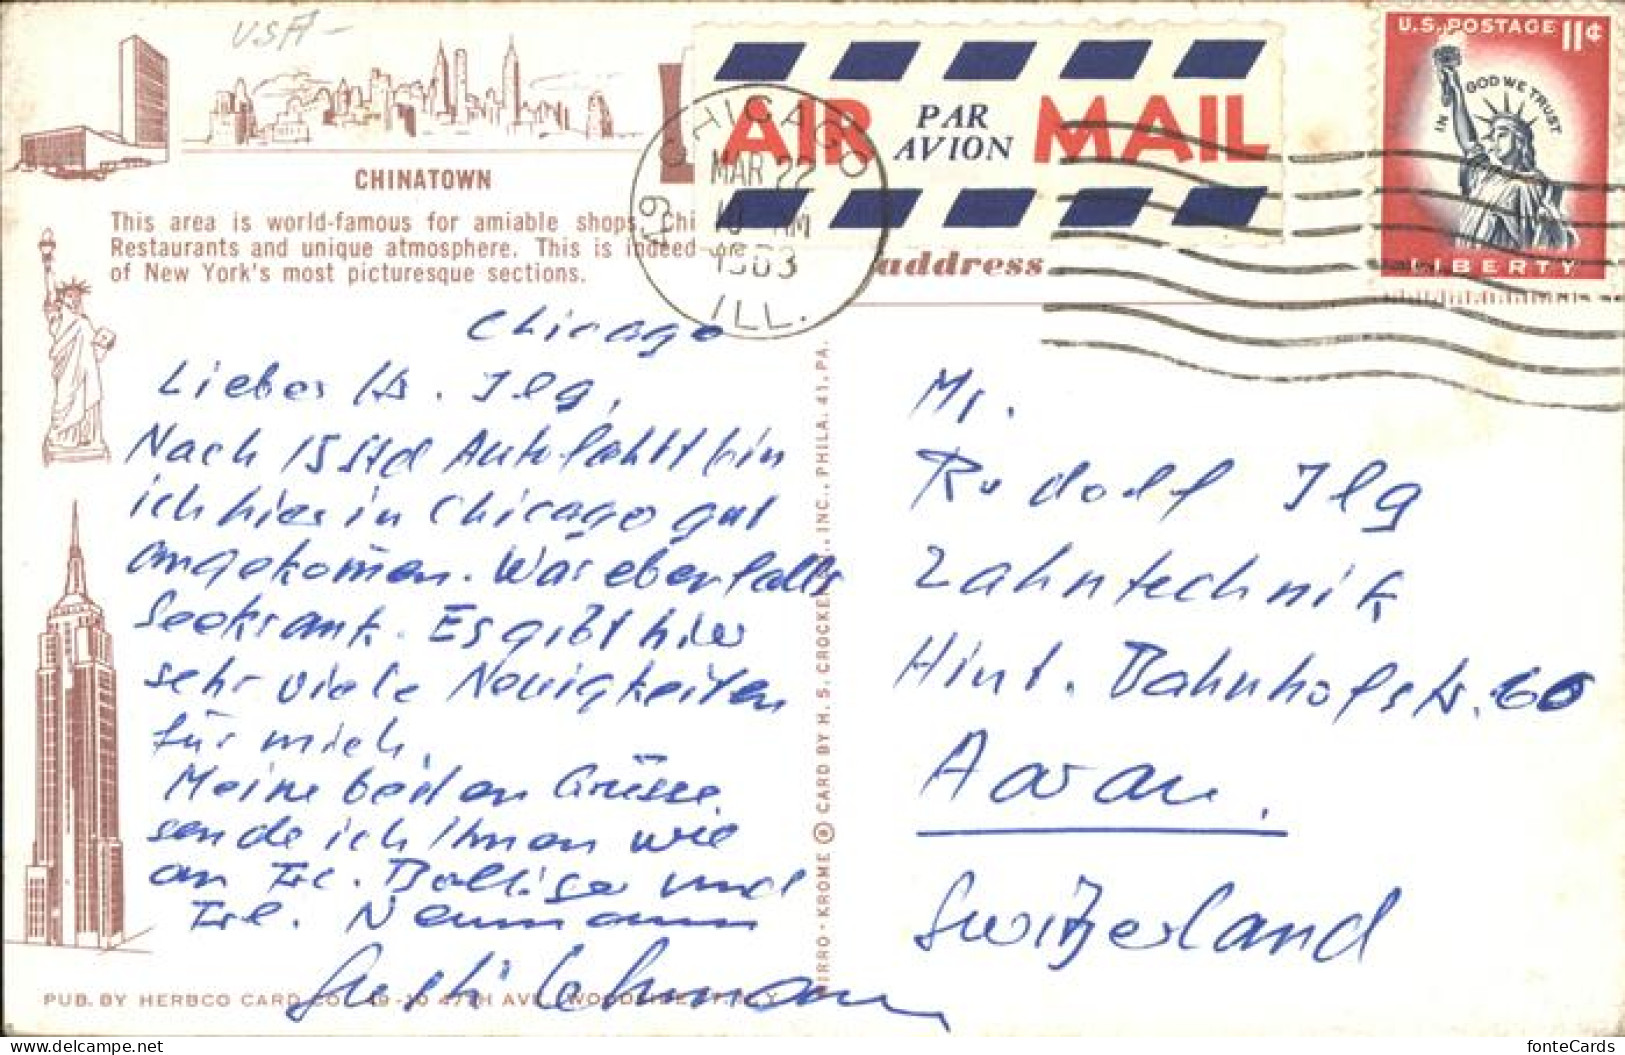 USA-
CHINATOWN
This area is world-famous for amiable shops, Chi
Restaurants and unique atmosphere. This is indeed one
of New York's most picturesque sections.
AIR PAR AVION MAIL
CHICAGO
19
MAR 22
AM
1963
ILL.
U.S. POSTAGE 11¢
IN GOD WE TRUST
LIBERTY
address
Chicago
Lieber Hr. Ilg,
Nach 15 Std Autofahrt bin
ich hier in Chicago gut
angekom̄en. War ebenfalls
Seekrank. Es gibt hier
sehr viele Neuigkeiten
für mich.
Meine besten Grüsse
sende ich Ihnen wie
an Frl. Bolliger und
Frl. Neumann
Lehmann
Mr.
Rudolf Ilg
Zahntechnik
Hint. Bahnhofstr. 60
Aarau.
Switzerland
MIRRO-KROME ® CARD BY H. S. CROCKER CO., INC., PHILA. 41, PA.
PUB. BY HERBCO CARD CO. 49-10 47TH AVE., WOODSIDE 77, N.Y.
fonteCards
Delcampe.net